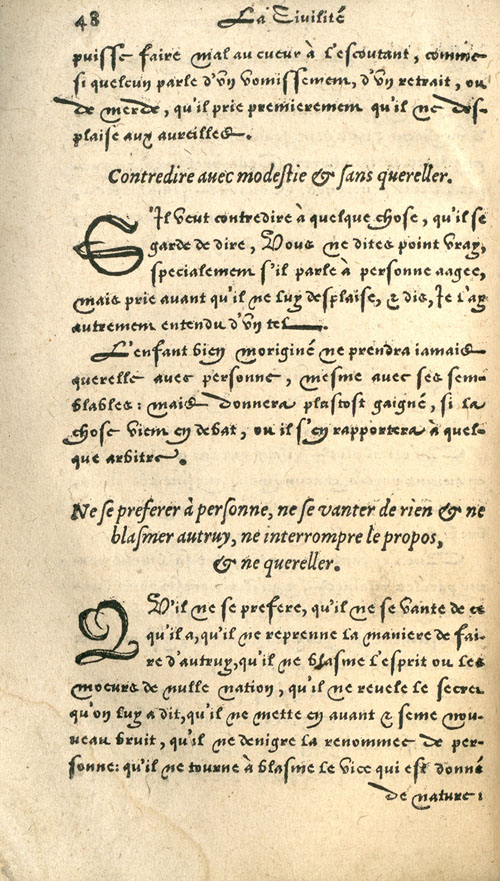 48 La Civilité
puisse faire mal au cueur à l'escoutant, comme
si quelcun parle d'vn vomissement, d'vn retrait, ou
de merde, qu'il prie premierement qu'il ne des-
plaise aux aureilles.
Contredire avec modestie & sans quereller.
S'Il veut contredire à quelque chose, qu'il se
garde de dire, Vous ne dites point vray,
specialement s'il parle à personne aagee,
mais prie auant qu'il ne luy desplaise, & dis, Ie l'ay
autrement entendu d'vn tel.
L'enfant bien moriginé ne prendra iamais
querelle auec personne, mesme auec ses sem-
blables: mais donnera plustost gaigné, si la
chose vient en debat, ou il s'en rapportera à quel-
que arbitre.
Ne se preferer à personne, ne se vanter de rien & ne
blasmer autruy, ne interrompre le propos,
& ne quereller.
QV'il ne se prefere, qu'il ne se vante de ce
qu'il a, qu'il ne reprenne la maniere de fai-
re d'autruy, qu'il ne blasme l'esprit ou les
moeurs de nulle nation, qu'il ne reuele le secret
qu'on luy a dit, qu'il ne mette en auant & seme nou-
ueau bruit, qu'il ne denigre la renommee de per-
sonne: qu'il ne tourne à blasme le vice qui est donné
de nature: